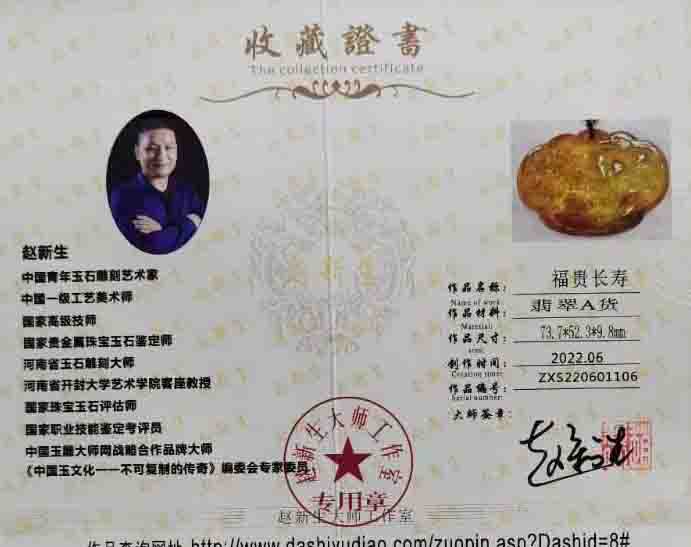 收藏證書
The collection certificate
赵新生
中国青年玉石雕刻艺术家
中国一级工艺美术师
国家高级技师
国家贵金属珠宝玉石鉴定师
河南省玉石雕刻大师
河南省开封大学艺术学院客座教授
国家珠宝玉石评估师
国家职业技能鉴定考评员
中国玉雕大师网战略合作品牌大师
《中国玉文化一一不可复制的传奇》编委会专家委员
作品名称: 福贵长寿
Name of work:
作品材料: 翡翠A货
Material:
作品尺寸: 73.7*52.3*9.8mm
size:
创作时间: 2022.06
Creation time:
作品编号: ZXS220601106
Serial number:
大师签章:
赵新生
赵新生大师工作室
专用章
赵新生大师工作室
作品查询网址 http://www.dashiyudiao.com/zuopin.asp?Dashid=8#